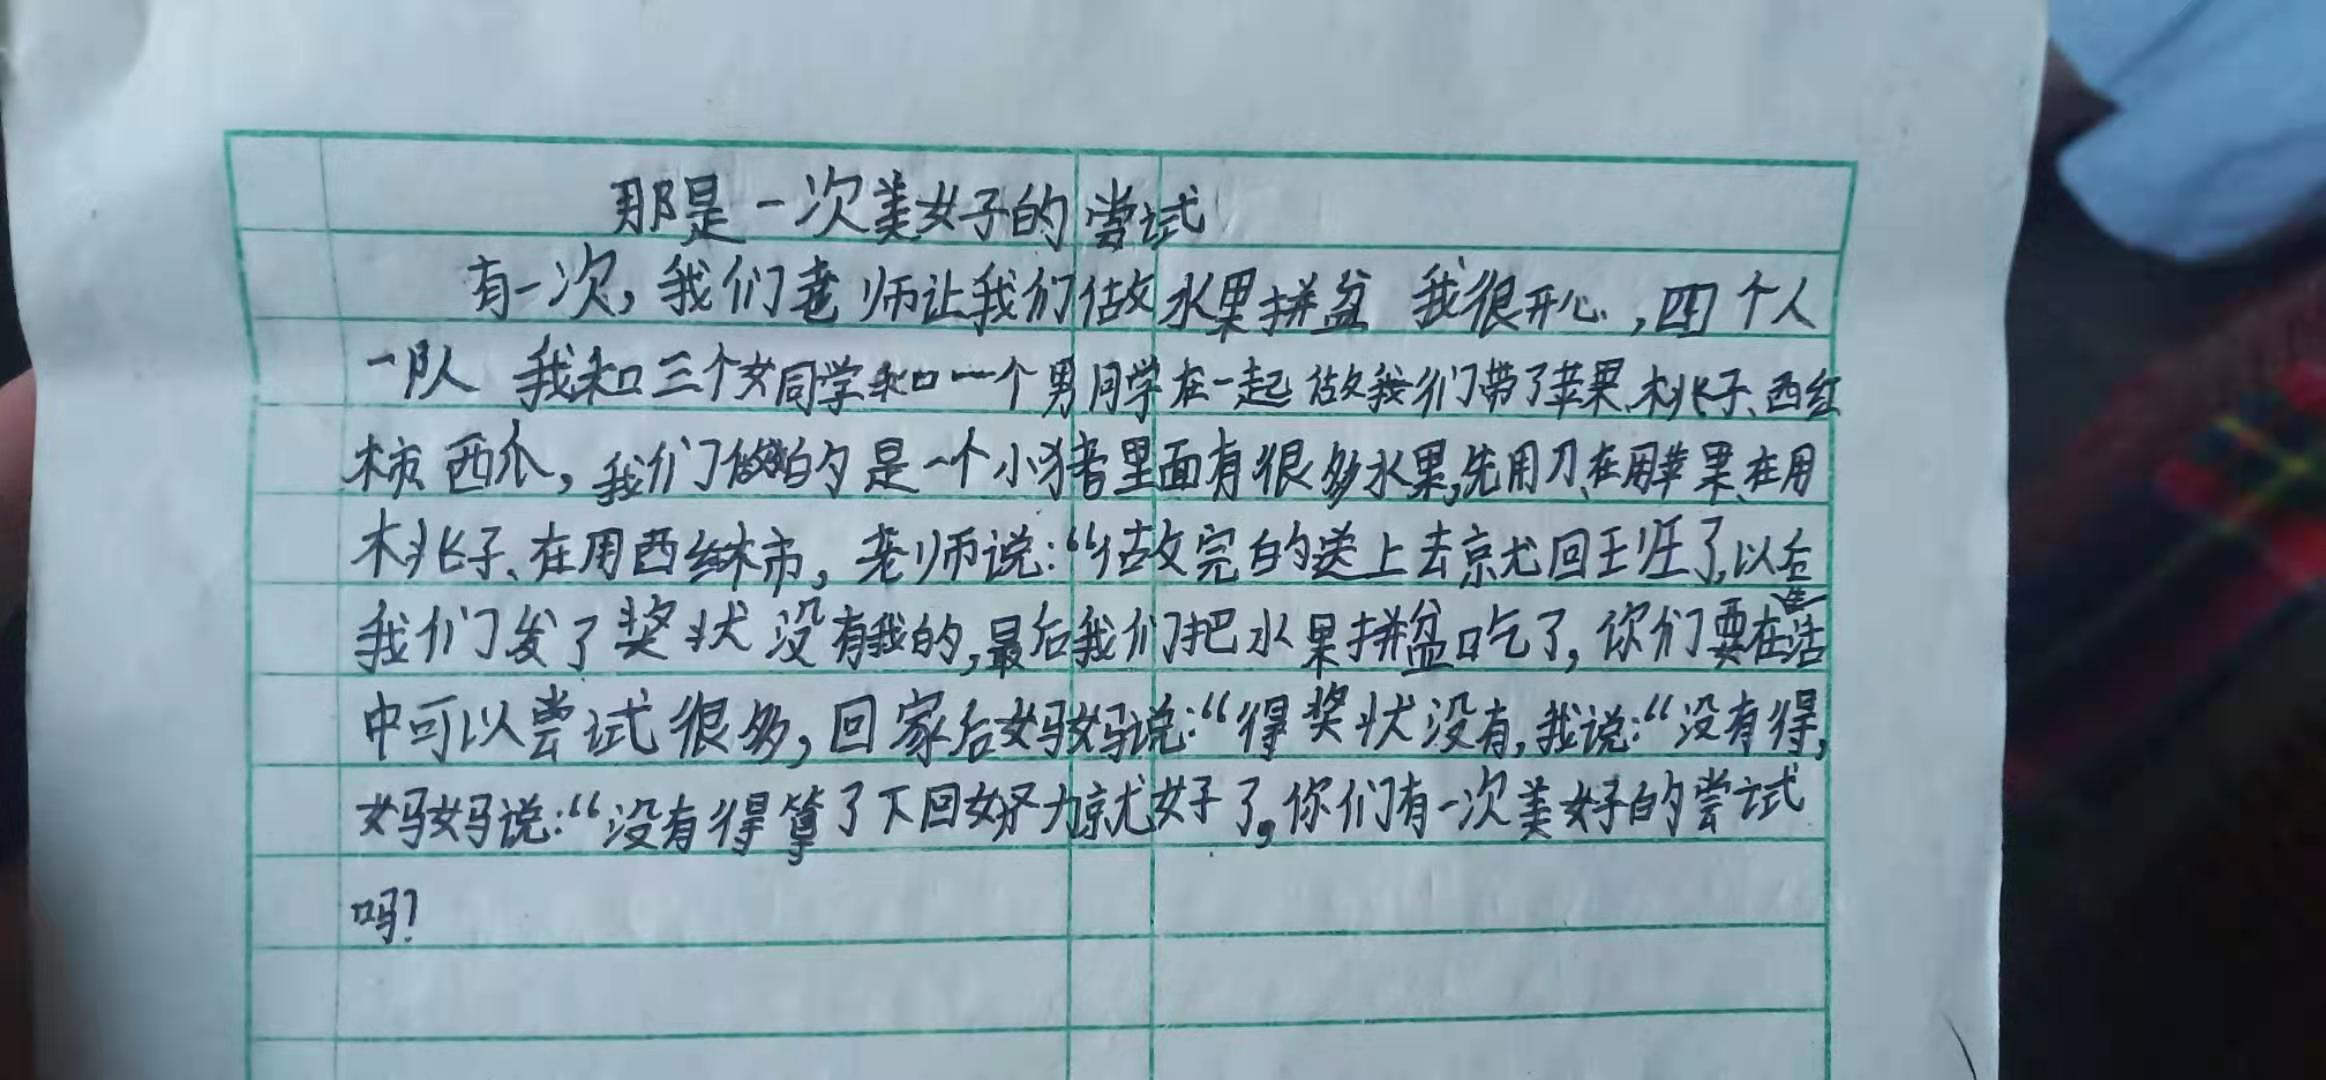 那是一次美好的尝试
有一次，我们老师让我们做水果拼盆 我很开心，四个人
一队 我和三个女同学和一个男同学在一起做我们带了苹果、桃子、西红
柿 西瓜，我们做的是一个小猪里面有很多水果，先用刀、在用苹果、在用
桃子、在用西红柿，老师说：“做完的送上去就回班了，以后
我们发了奖状没有我的，最后我们把水果拼盆吃了，你们要在生活
中可以尝试很多，回家后妈妈说：“得奖状没有，我说：“没有得，
妈妈说：“没有得算了下回努力就好了。你们有一次美好的尝试
吗？